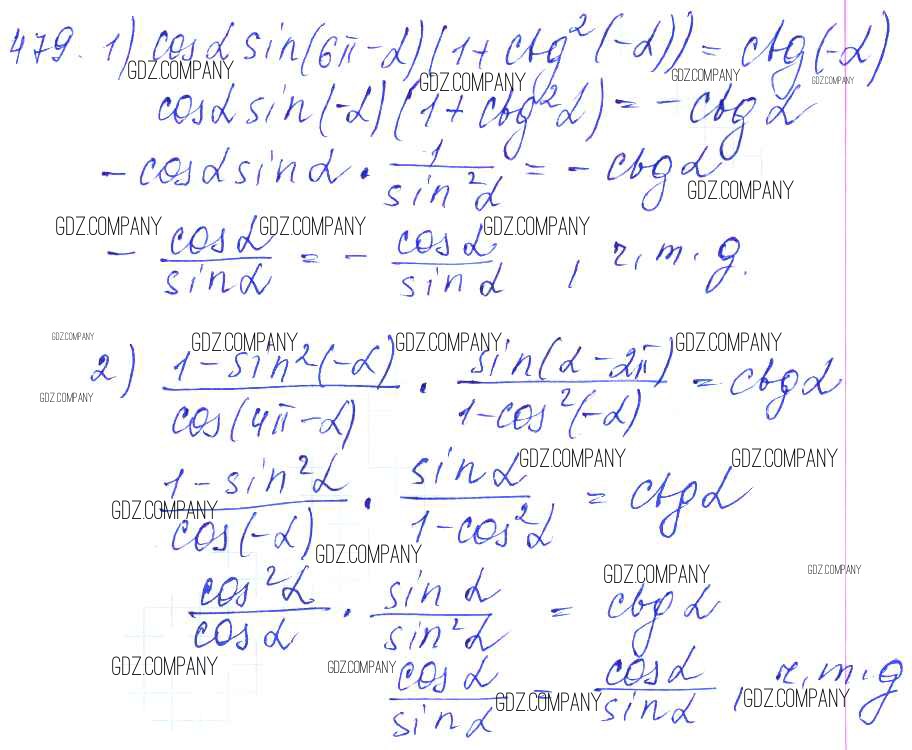 479. 1) cosα sin(6π-α)(1+ctg²(-α)) = ctg(-α)
GDZ.COMPANY GDZ.COMPANY GDZ.COMPANY GDZ.COMPANY
cosα sin(-α)(1+ctg²α) = -ctgα
-cosα sinα · 1/sin²α = -ctgα
GDZ.COMPANY
GDZ.COMPANY GDZ.COMPANY GDZ.COMPANY
- cosα/sinα = - cosα/sinα , ч.т.д.
GDZ.COMPANY GDZ.COMPANY GDZ.COMPANY GDZ.COMPANY
2) (1-sin²(-α))/cos(4π-α) · sin(α-2π)/(1-cos²(-α)) = ctgα
GDZ.COMPANY
GDZ.COMPANY GDZ.COMPANY
(1-sin²α)/cos(-α) · sinα/(1-cos²α) = ctgα
GDZ.COMPANY
GDZ.COMPANY
GDZ.COMPANY GDZ.COMPANY
cos²α/cosα · sinα/sin²α = ctgα
GDZ.COMPANY GDZ.COMPANY
cosα/sinα = cosα/sinα , ч.т.д
GDZ.COMPANY GDZ.COMPANY